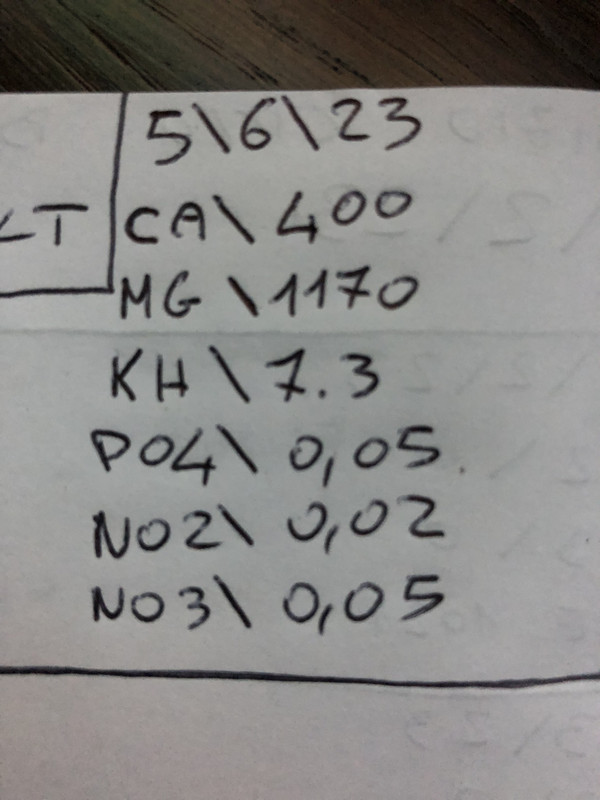 5\6\23
LT CA\400
MG \1170
KH \7.3
PO4\ 0,05
NO2\ 0,02
NO3\ 0,05